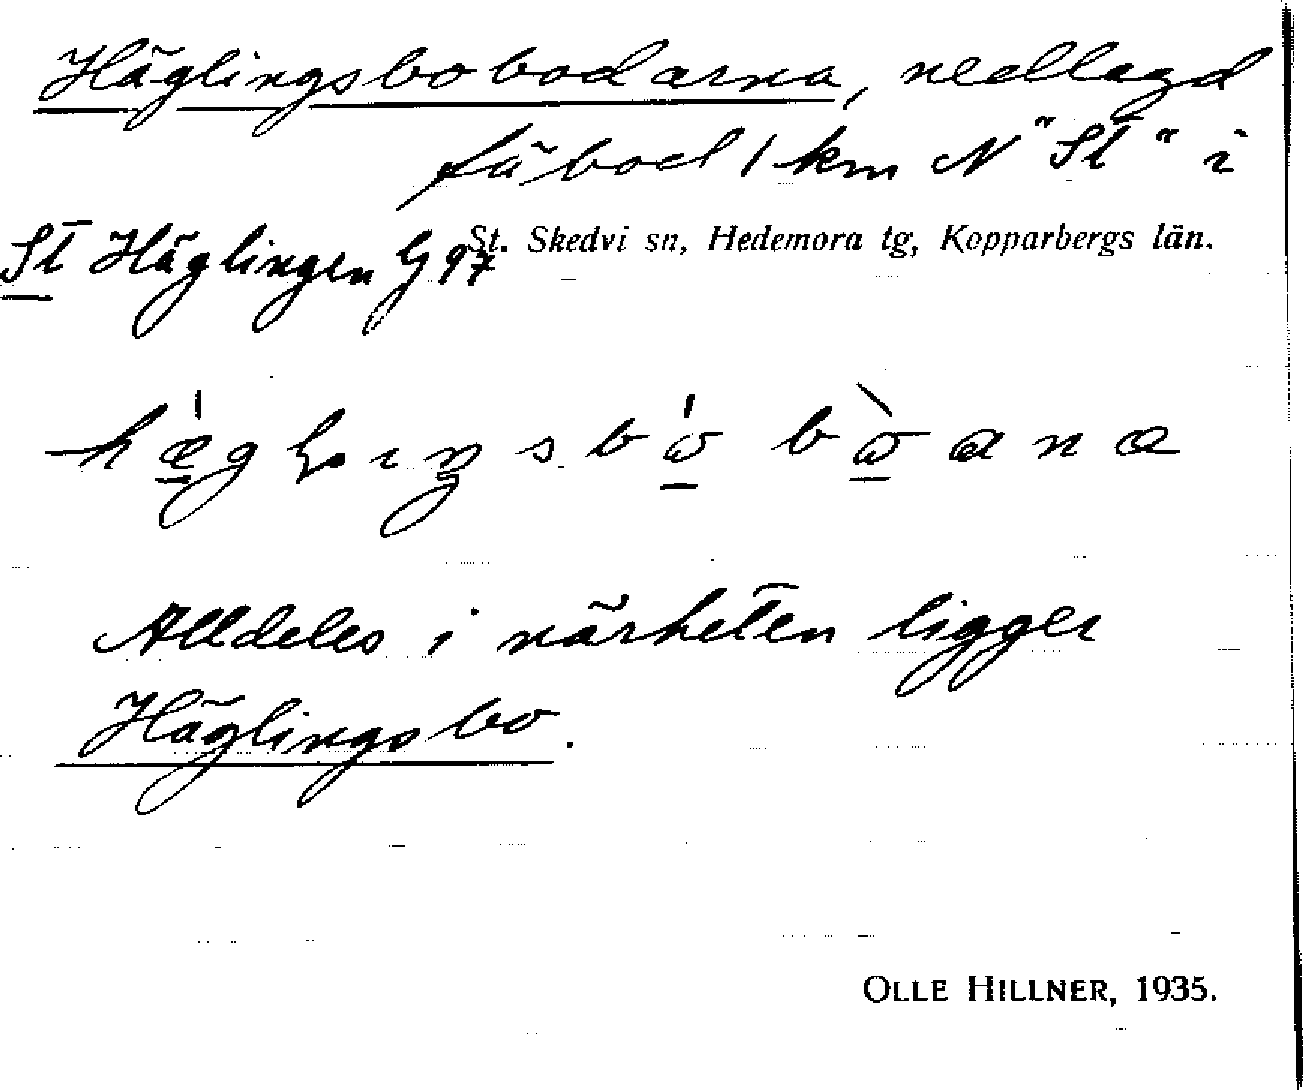 Häglingsbobodarna, nedlagd
fäbod 1 km N "St" i
St Häglingen G 97
St. Skedvi sn, Hedemora tg, Kopparbergs län.
Alldeles i närheten ligger
Häglingsbo.
OLLE HILLNER, 1935.